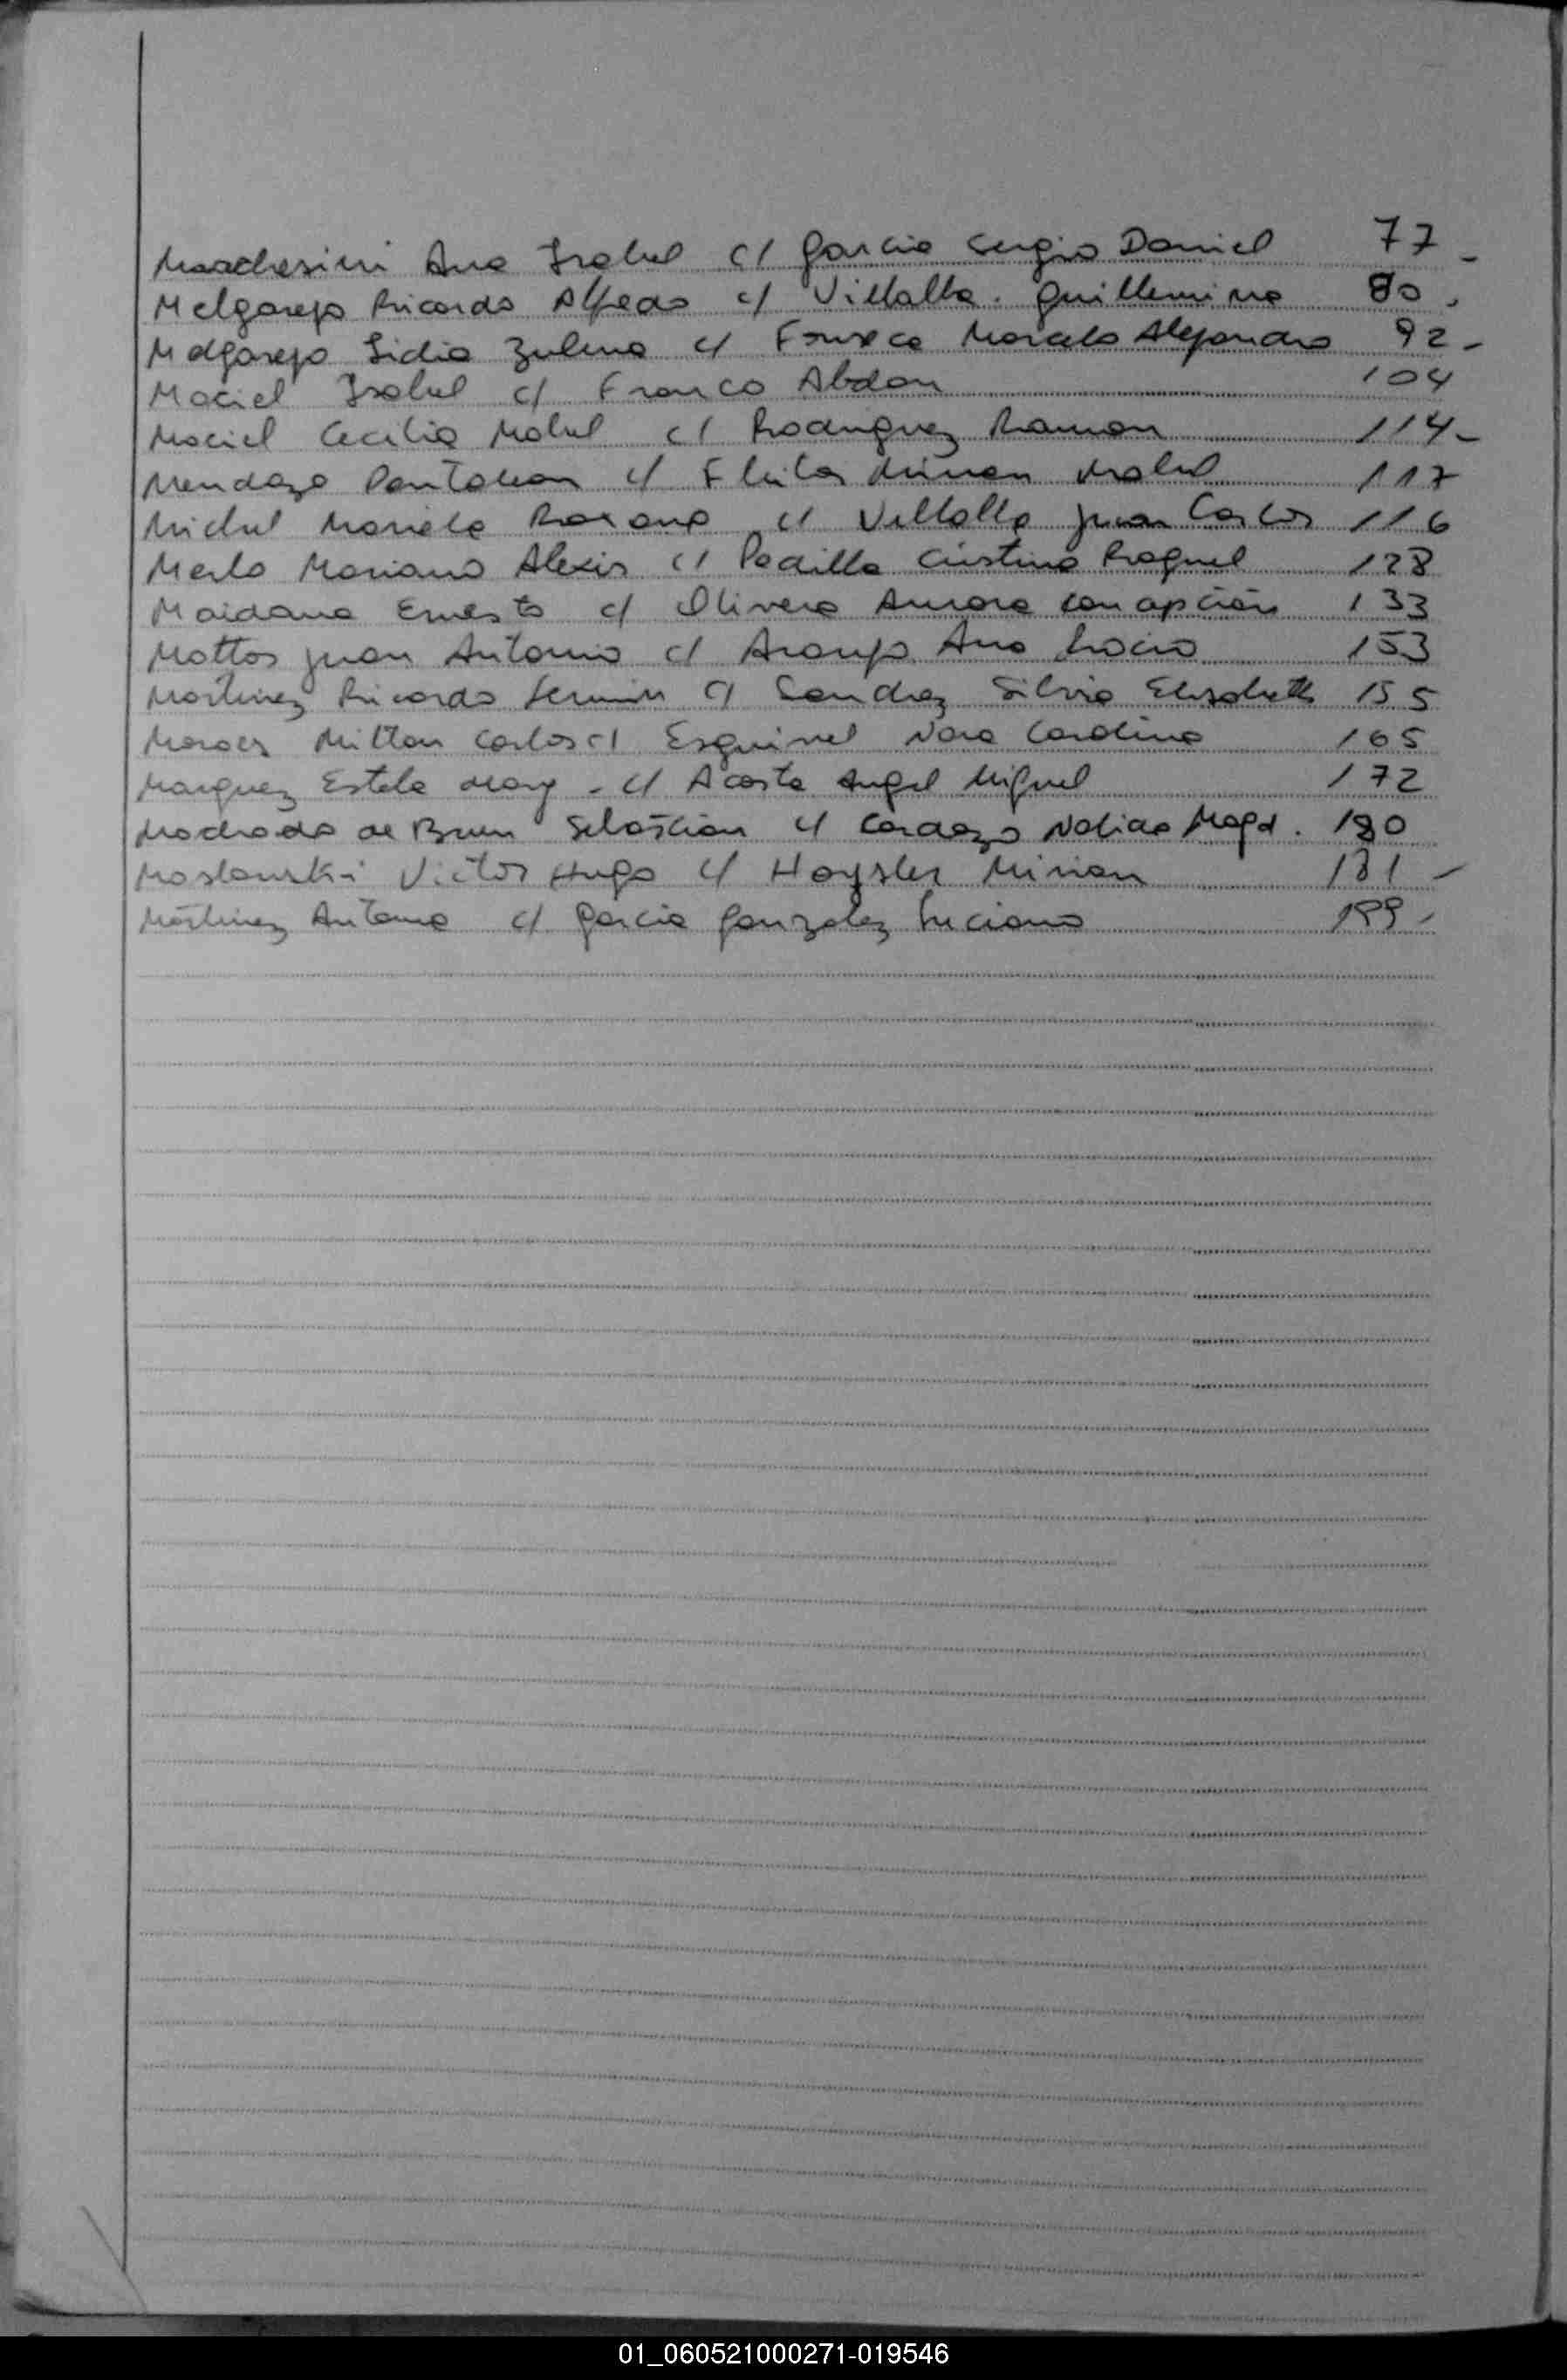 Marchesini Ana Isabel c/ Garcia Sergio Daniel 77 -
Melgarejo Ricardo Alfedo c/ Villalba. Guillermina 80.
Melgarejo Lidia Zulena c/ Fonseca Marcelo Alejandro 92 -
Maciel Isabel c/ Franco Abdon 104
Maciel Cecilia Mabel c/ Rodriguez Ramon 114 -
Mendoza Pantaleon c/ Fleitas Mirian Isabel 117
Michel Mariela Roxana c/ Villalba Juan Carlos 116
Merlo Mariano Alexis c/ Padilla Cristina Raquel 128
Maidana Ernesto c/ Olivera Aurora Concepción 133
Mattos Juan Antonio c/ Araujo Ana Rocio 153
Martinez Ricardo Fermin c/ Sanchez Silvia Elisabeth 155
Moraes Milton Carlos c/ Esquivel Nora Carolina 165
Marquez Estela Mary - c/ Acosta Angel Miguel 172
Machado de Brum Sebastian c/ Cardozo Nolida Magd. 180
Maslowski Victor Hugo c/ Hoysler Mirian 181 -
Martinez Antonia c/ Garcia Gonzalez Luciano 199 -
01_060521000271-019546